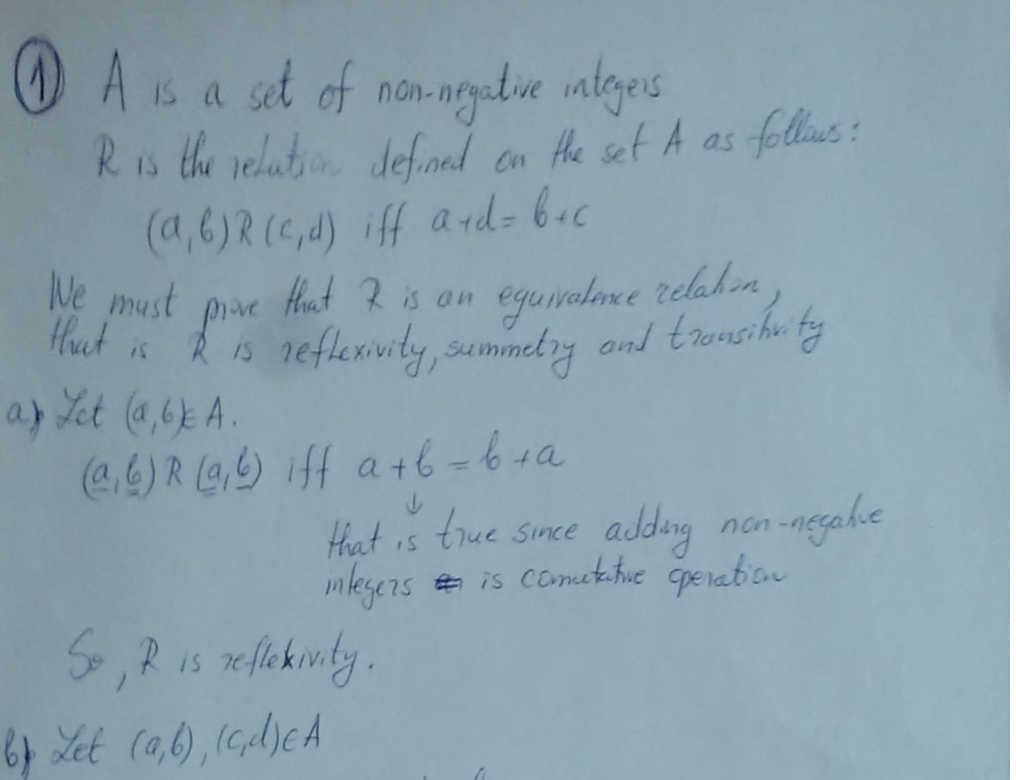 1 A is a set of non-negative integers
R is the relation defined on the set A as follows:
(a,b)R(c,d) iff a+d=b+c
We must prove that R is an equivalence relation,
that is R is reflexivity, summetry and transitivity
a) Let (a,b)∈A.
(a,b)R(a,b) iff a+b=b+a
↓
that is true since adding non-negative
integers is comutative operation
So, R is reflekivity.
b) Let (a,b),(c,d)∈A